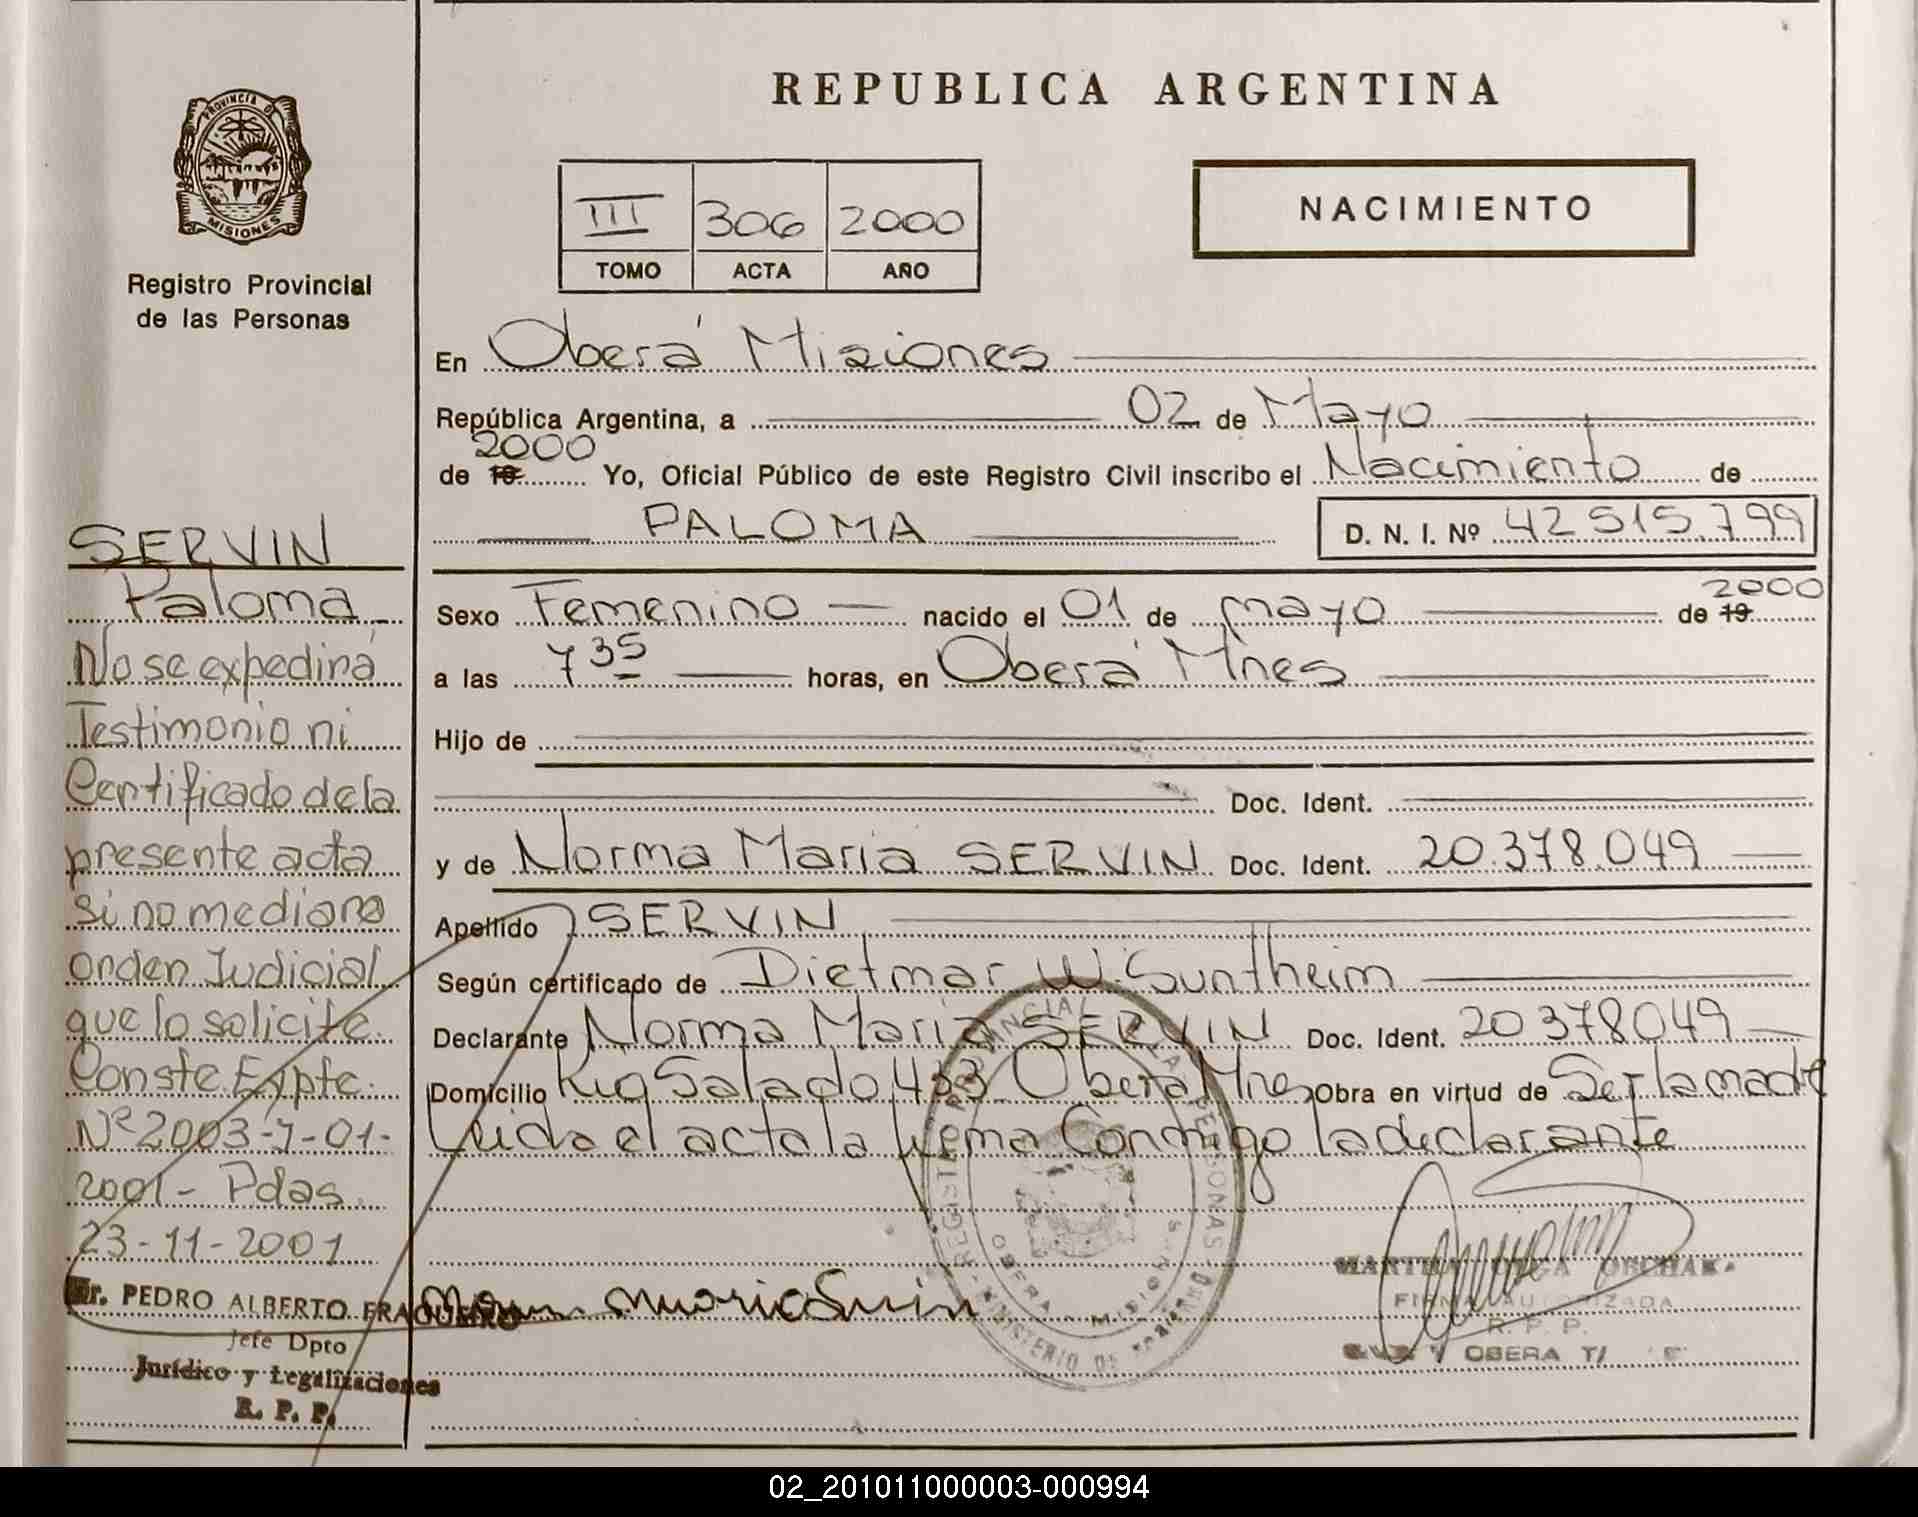 PROVINCIA DE
MISIONES
Registro Provincial
de las Personas
SERVIN
Paloma
No se expedirá
Testimonio ni
Certificado de la
presente acta
si no mediara
orden Judicial
que lo solicite.
Conste Expte.
Nº 2003-J-01-
2001- Pdas.
23-11-2001
Dr. PEDRO ALBERTO FRAGUEIRO
Jefe Dpto
Jurídico y Legalizaciones
R. P. P.
REPUBLICA ARGENTINA
III 306 2000
TOMO ACTA AÑO
NACIMIENTO
En Oberá Misiones
República Argentina, a 02 de Mayo
de 19 2000 Yo, Oficial Público de este Registro Civil inscribo el Nacimiento de
PALOMA D. N. I. Nº 42 515.799
Sexo Femenino nacido el 01 de mayo de 19 2000
a las 7 35 horas, en Oberá Mnes
Hijo de
Doc. Ident.
y de Norma Maria SERVIN Doc. Ident. 20.378.049
Apellido SERVIN
Según certificado de Dietmar W. Suntheim
Declarante Norma Maria SERVIN Doc. Ident. 20 378049
Domicilio Rio Salado 433 Oberá Mnes Obra en virtud de Ser la madre
Leida el acta la firma Conmigo la declarante
REGISTRO PROVINCIAL DE LAS PERSONAS
MINISTERIO DE GOBIERNO
OBERA - MISIONES
MARTHA OLGA
FIRMA AUTORIZADA
R. P. P.
OBERA
02_201011000003-000994